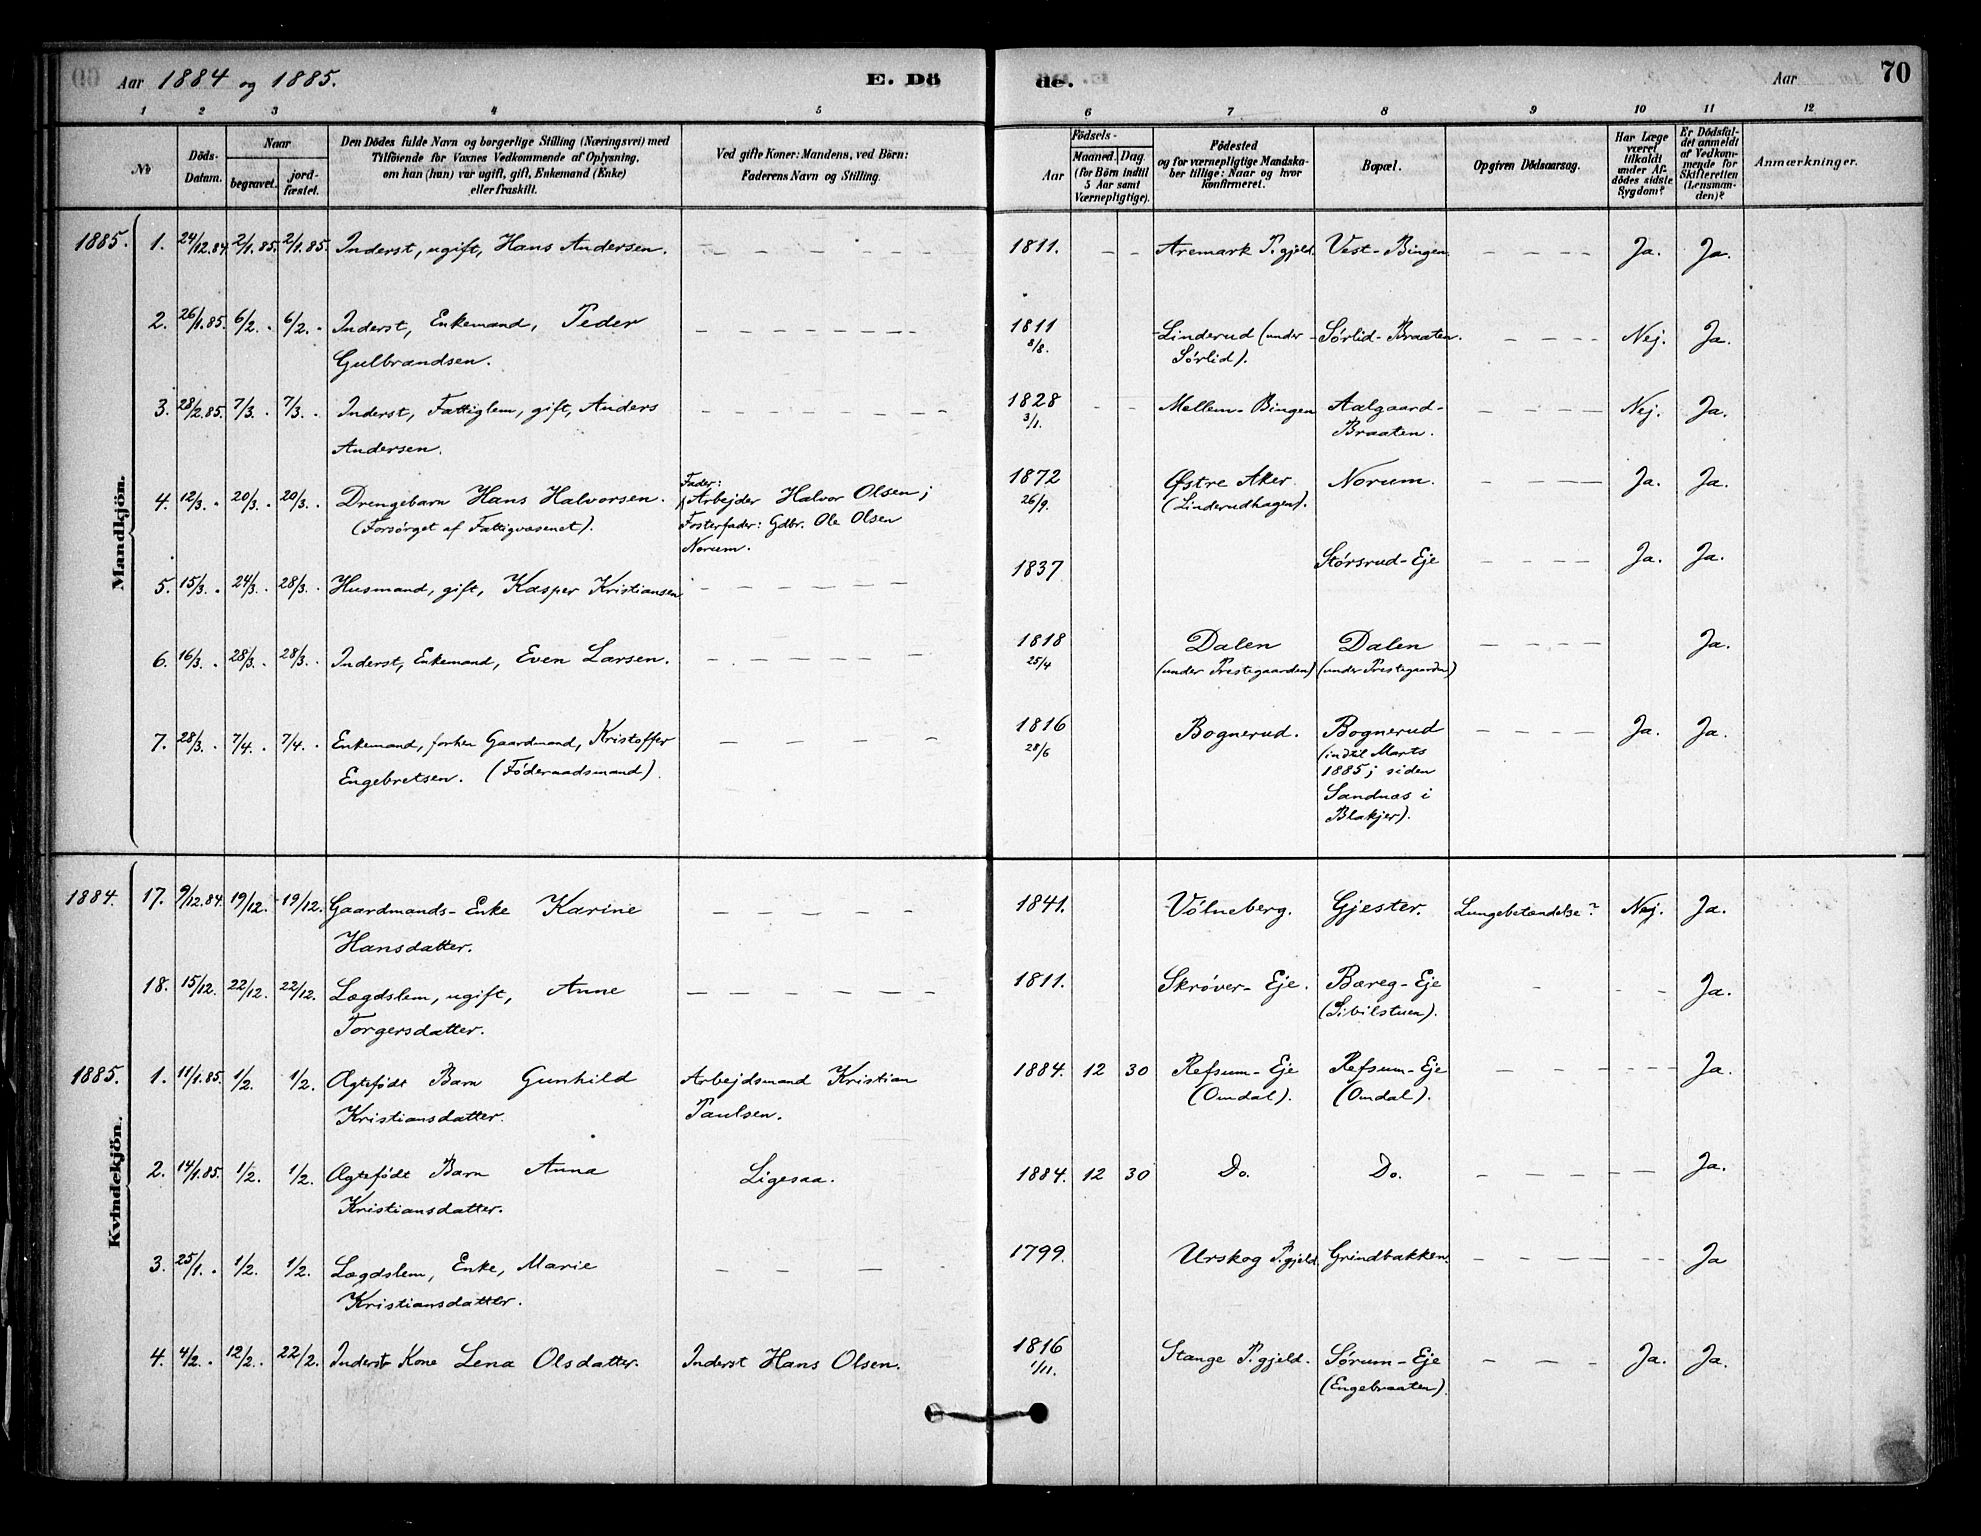 Aar 1884 og 1885. E. Dö de. Aar 70
1 2 3 4 5 6 7 8 9 10 11 12
No
Döds-Datum.
Naar
begravet.
jord-fæstet.
Den Dödes fulde Navn og borgerlige Stilling (Næringsvei) med
Tilföiende for Voxnes Vedkommende af Oplysning,
om han (hun) var ugift, gift, Enkemand (Enke)
eller fraskilt.
Ved gifte Koner: Mandens, ved Börn:
Faderens Navn og Stilling.
Födsels-
Aar
Maaned. Dag.
(for Börn indtil
5 Aar samt
Værnepligtige).
Födested
og for værnepligtige Mandska-
ber tillige: Naar og hvor
konfirmeret.
Bopæl.
Opgiven Dödsaarsag.
Har Læge
været
tilkaldt
under Af-
dödes sidste
Sygdom?
Er Dödsfal-
det anmeldt
af Vedkom-
mende for
Skifteretten
(Lensman-
den)?
Anmærkninger.
Mandkjön.
1885. 1. 24/12.84. 2/1.85. 2/1.85. Inderst, ugift, Hans Andersen. 1811. Aremark P.gjeld. Vest-Bingen Ja. Ja.
2. 26/1.85. 6/2. 6/2. Inderst, Enkemand, Peder 1811 Linderud (under Sørlid-Braaten. Nej. Ja.
Gulbrandsen. 8/8. Sørlid).
3. 28/2.85. 7/3. 7/3. Inderst, Fattiglem, gift, Anders 1828 Mellem-Bingen Aalgaard- Nej. Ja.
Andersen. 3/1. Braaten.
4. 12/3. 20/3. 20/3. Drengebarn Hans Halvorsen. Fader: Arbejder Halvor Olsen; 1872 Østre Aker Norum. Ja. Ja.
(Forsørget af Fattigvæsenet). Fosterfader: Gdbr. Ole Olsen 26/9. (Linderudhagen).
Norum.
5. 15/3. 24/3. 28/3. Husmand, gift, Kasper Kristiansen 1837 Størsrud-Eje Ja. Ja.
6. 16/3. 28/3. 28/3. Inderst, Enkemand, Even Larsen. 1818 Dalen Dalen Ja.
25/4 (under Prestegaarden) (under Prestegaarden)
7. 28/3. 7/4. 7/4. Enkemand, forhen Gaardmand, Kristoffer 1816 Bognerud. Bognerud Ja. Ja.
Engebretsen. (Føderaadsmand). 28/6 (indtil Marts
1885; siden
Sandnæs i
Blakjer).
Kvindekjön.
1884. 17. 9/12.84. 19/12. 19/12. Gaardmands-Enke Karine 1841. Vølneberg. Gjester. Lungebetændelse? Nej. Ja.
Hansdatter.
18. 15/12. 22/12. 22/12. Lægdslem, ugift, Anne 1811. Skrøver-Eje. Bæreg-Eje Ja.
Torgersdatter. (Sibilstuen).
1885. 1. 11/1.85. 1/2. 1/2. Ægtefødt Barn Gunhild Arbejdsmand Kristian 1884. 12 30 Refsum-Eje Refsum-Eje Ja.
Kristiansdatter. Paulsen. (Omdal). (Omdal).
2. 14/1.85. 1/2. 1/2. Ægtefødt Barn Anna Ligesaa. 1884. 12 30 Do. Do. Ja.
Kristiansdatter.
3. 25/1. 1/2. 1/2. Lægdslem, Enke, Marie 1799. Urskog P.gjeld. Grindbakken. Ja
Kristiansdatter.
4. 4/2. 12/2. 22/2. Inderst Kone Lena Olsdatter. Inderst Hans Olsen. 1816 Stange P.gjeld. Sørum-Eje Ja. Ja.
1/11. (Engebraaten).